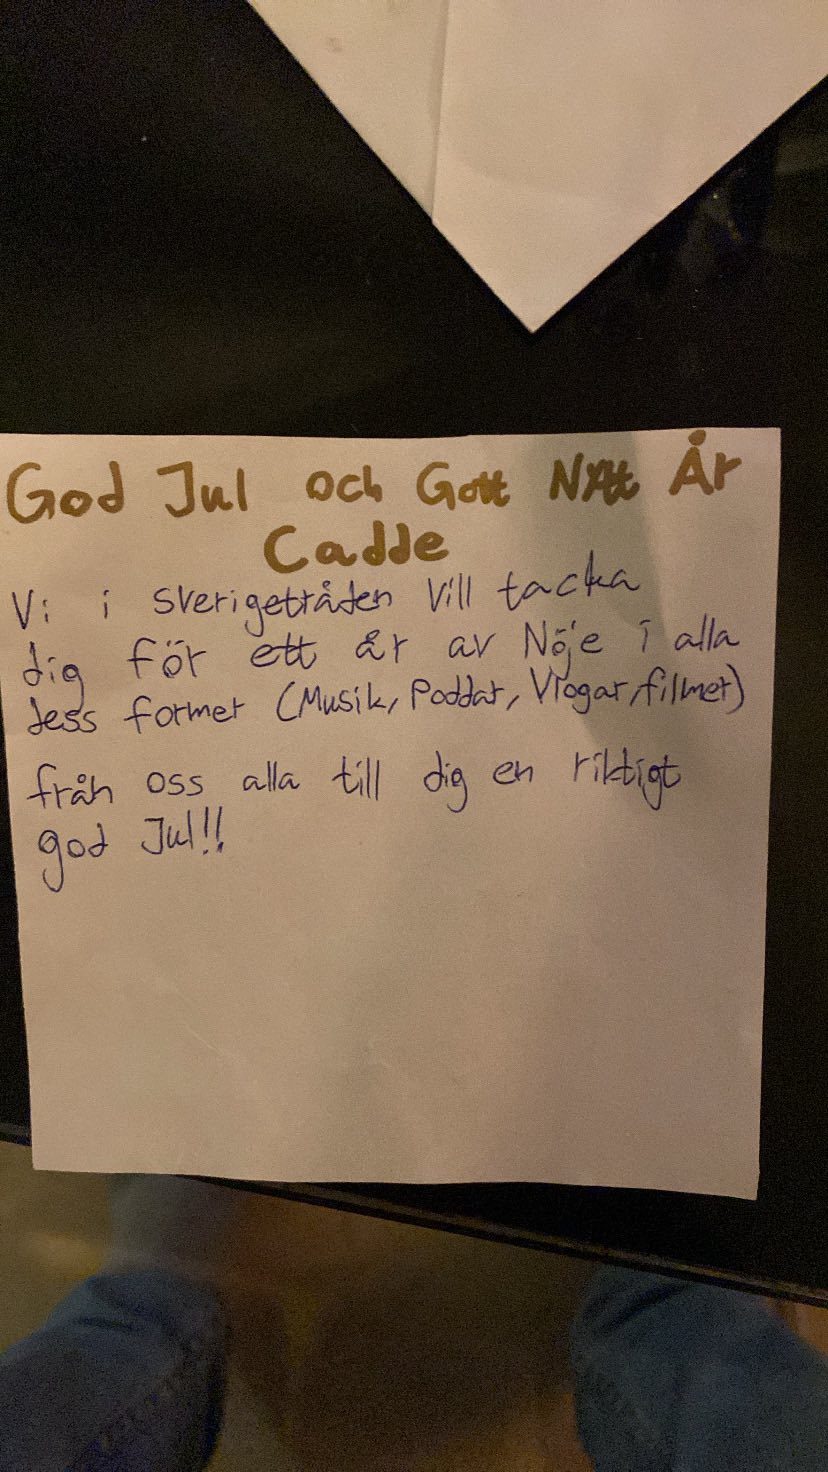 God Jul och Gott Nytt År
Cadde
Vi i sverigetråden vill tacka
dig för ett år av Nöje i alla
dess former (Musik, Poddar, Vlogar, filmer)
från oss alla till dig en riktigt
god Jul!!